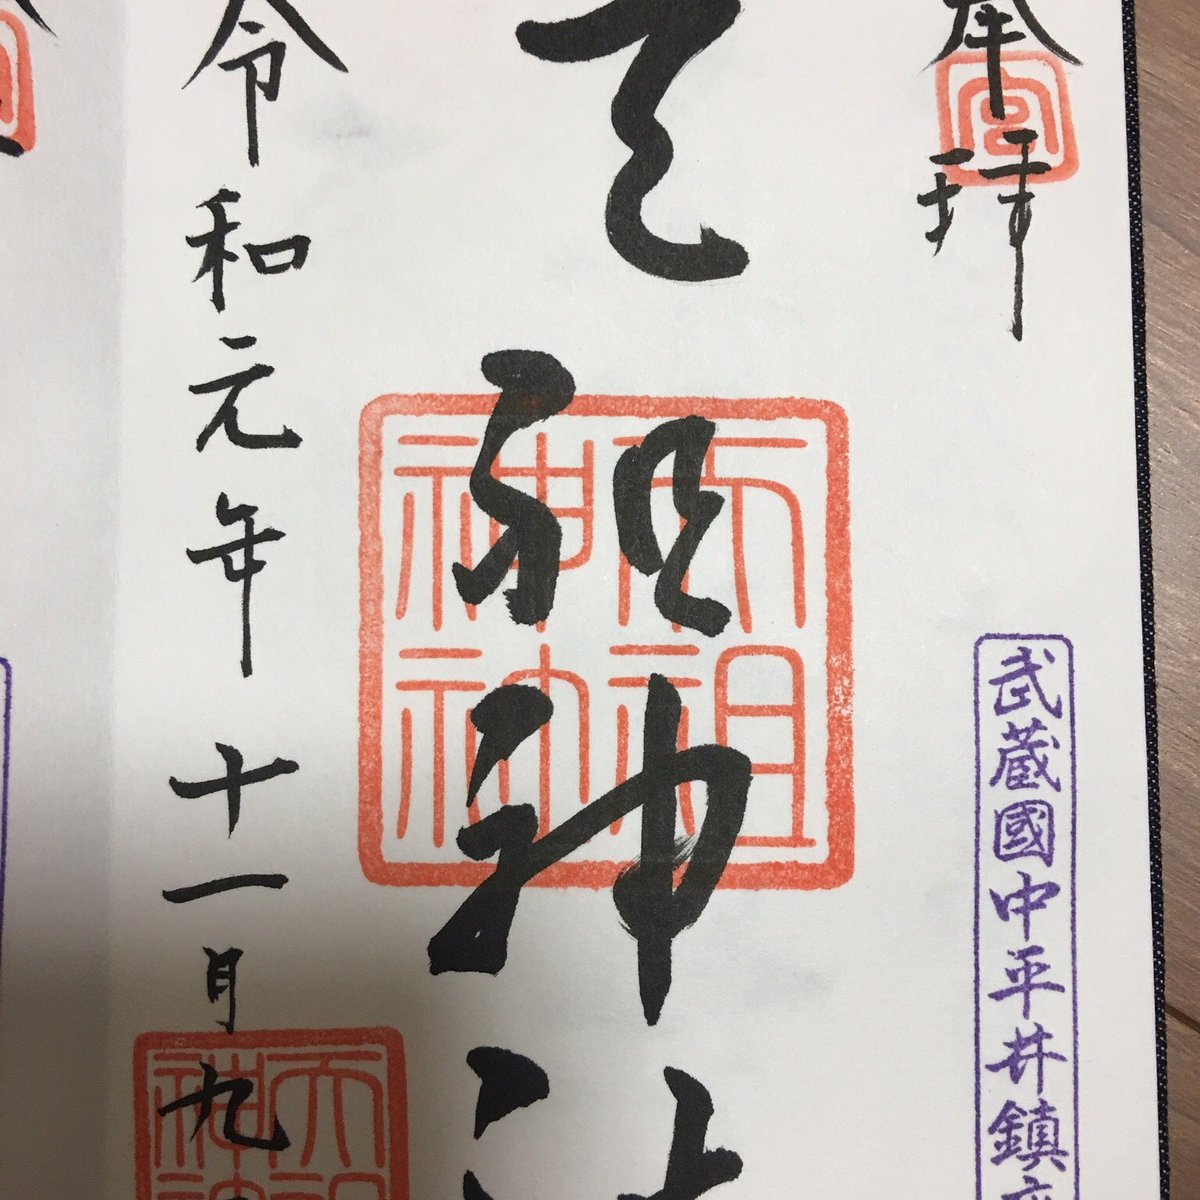 奉拝
武蔵國中平井鎮守
天祖神社
天祖神社
令和元年十一月九